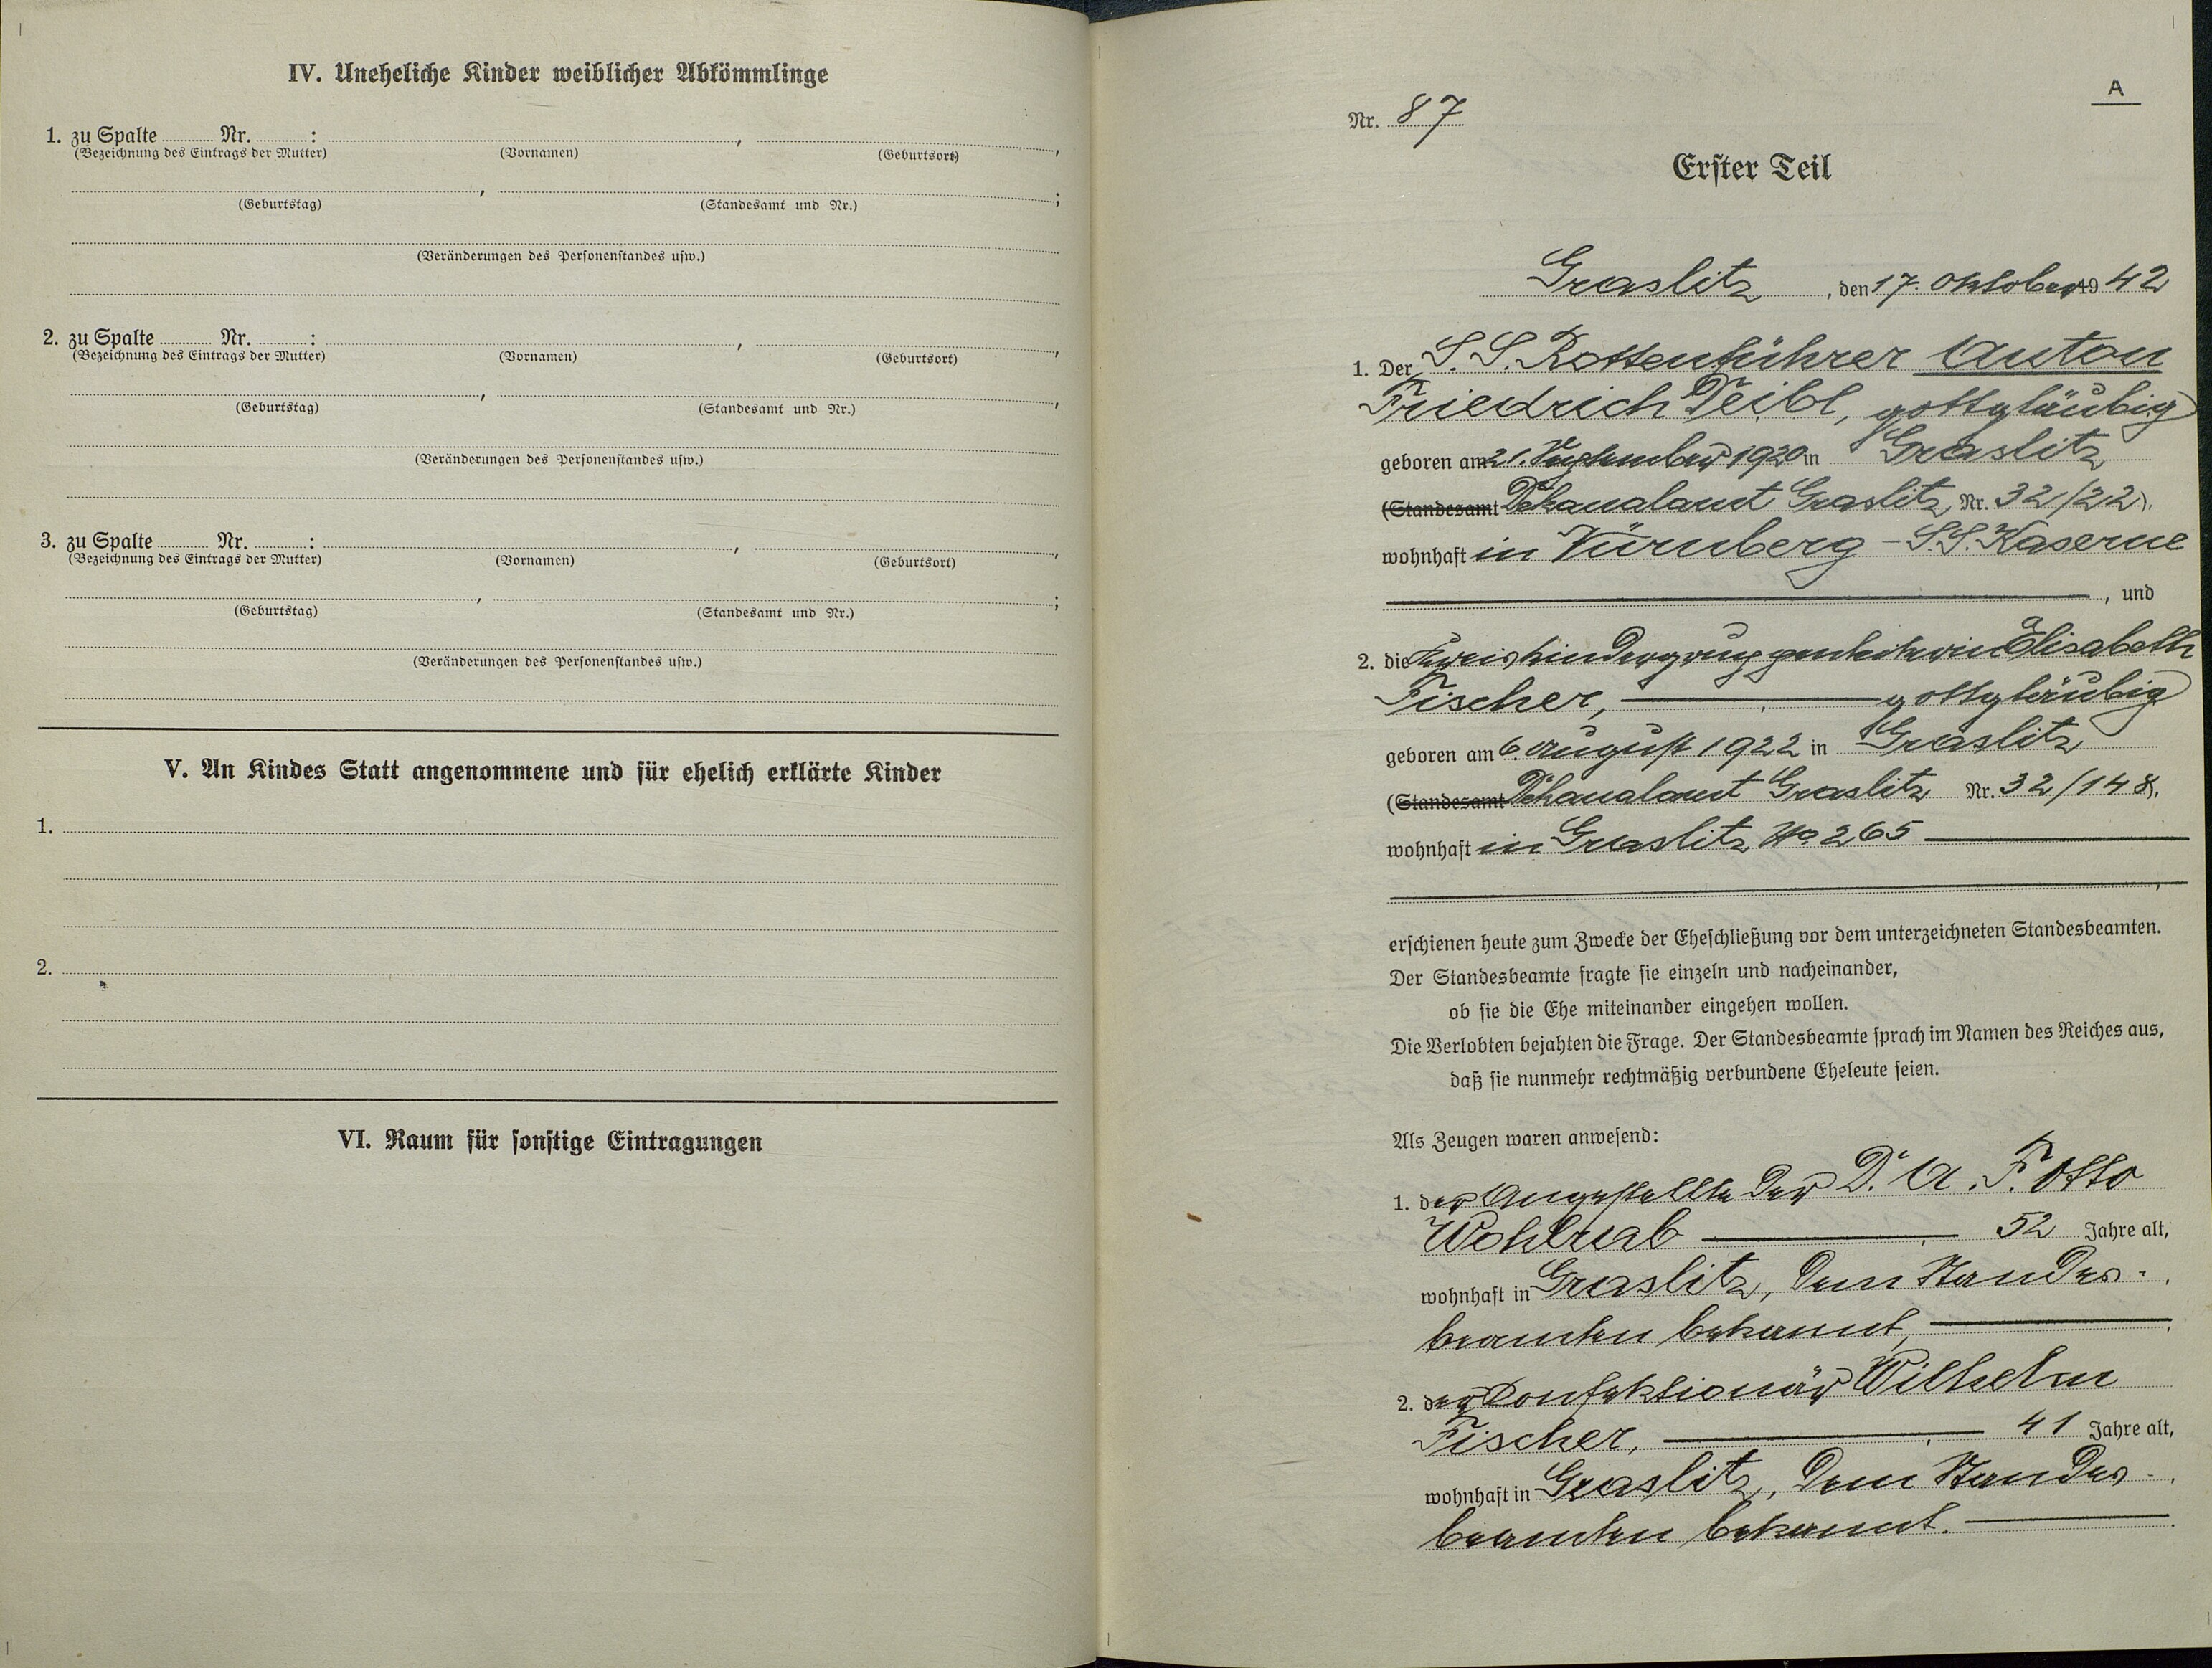 IV. Uneheliche Kinder weiblicher Abkömmlinge
1. zu Spalte ........ Nr. ........ : ........ , ........ ,
(Bezeichnung des Eintrags der Mutter) (Vornamen) (Geburtsort)
........ , ........ ;
(Geburtstag) (Standesamt und Nr.)
(Veränderungen des Personenstandes usw.)
2. zu Spalte ........ Nr. ........ : ........ , ........ ,
(Bezeichnung des Eintrags der Mutter) (Vornamen) (Geburtsort)
........ , ........ ,
(Geburtstag) (Standesamt und Nr.)
(Veränderungen des Personenstandes usw.)
3. zu Spalte ........ Nr. ........ : ........ , ........ ,
(Bezeichnung des Eintrags der Mutter) (Vornamen) (Geburtsort)
........ , ........ ;
(Geburtstag) (Standesamt und Nr.)
(Veränderungen des Personenstandes usw.)
V. An Kindes Statt angenommene und für ehelich erklärte Kinder
1.
2.
VI. Raum für sonstige Eintragungen
A
Nr. 87
Erster Teil
Graslitz, den 17. Oktober 1942
1. Der S.S. Rottenführer Anton
Friedrich Deibl, gottgläubig
geboren am 21. September 1920 in Graslitz
(Standesamt Dekanalamt Graslitz Nr. 32/22),
wohnhaft in Nürnberg - S.S. Kaserne
, und
2. die Kreiskindergruppenleiterin Elisabeth
Fischer, gottgläubig
geboren am 6. August 1922 in Graslitz
(Standesamt Dekanalamt Graslitz Nr. 32/148),
wohnhaft in Graslitz No 265
erschienen heute zum Zwecke der Eheschließung vor dem unterzeichneten Standesbeamten.
Der Standesbeamte fragte sie einzeln und nacheinander,
ob sie die Ehe miteinander eingehen wollen.
Die Verlobten bejahten die Frage. Der Standesbeamte sprach im Namen des Reiches aus,
daß sie nunmehr rechtmäßig verbundene Eheleute seien.
Als Zeugen waren anwesend:
1. der Angestellte der D. A. F. Otto
Wohlrab 52 Jahre alt,
wohnhaft in Graslitz, dem Standes-
beamten bekannt,
2. der Konfektionär Wilhelm
Fischer, 41 Jahre alt,
wohnhaft in Graslitz, dem Standes-
beamten bekannt.